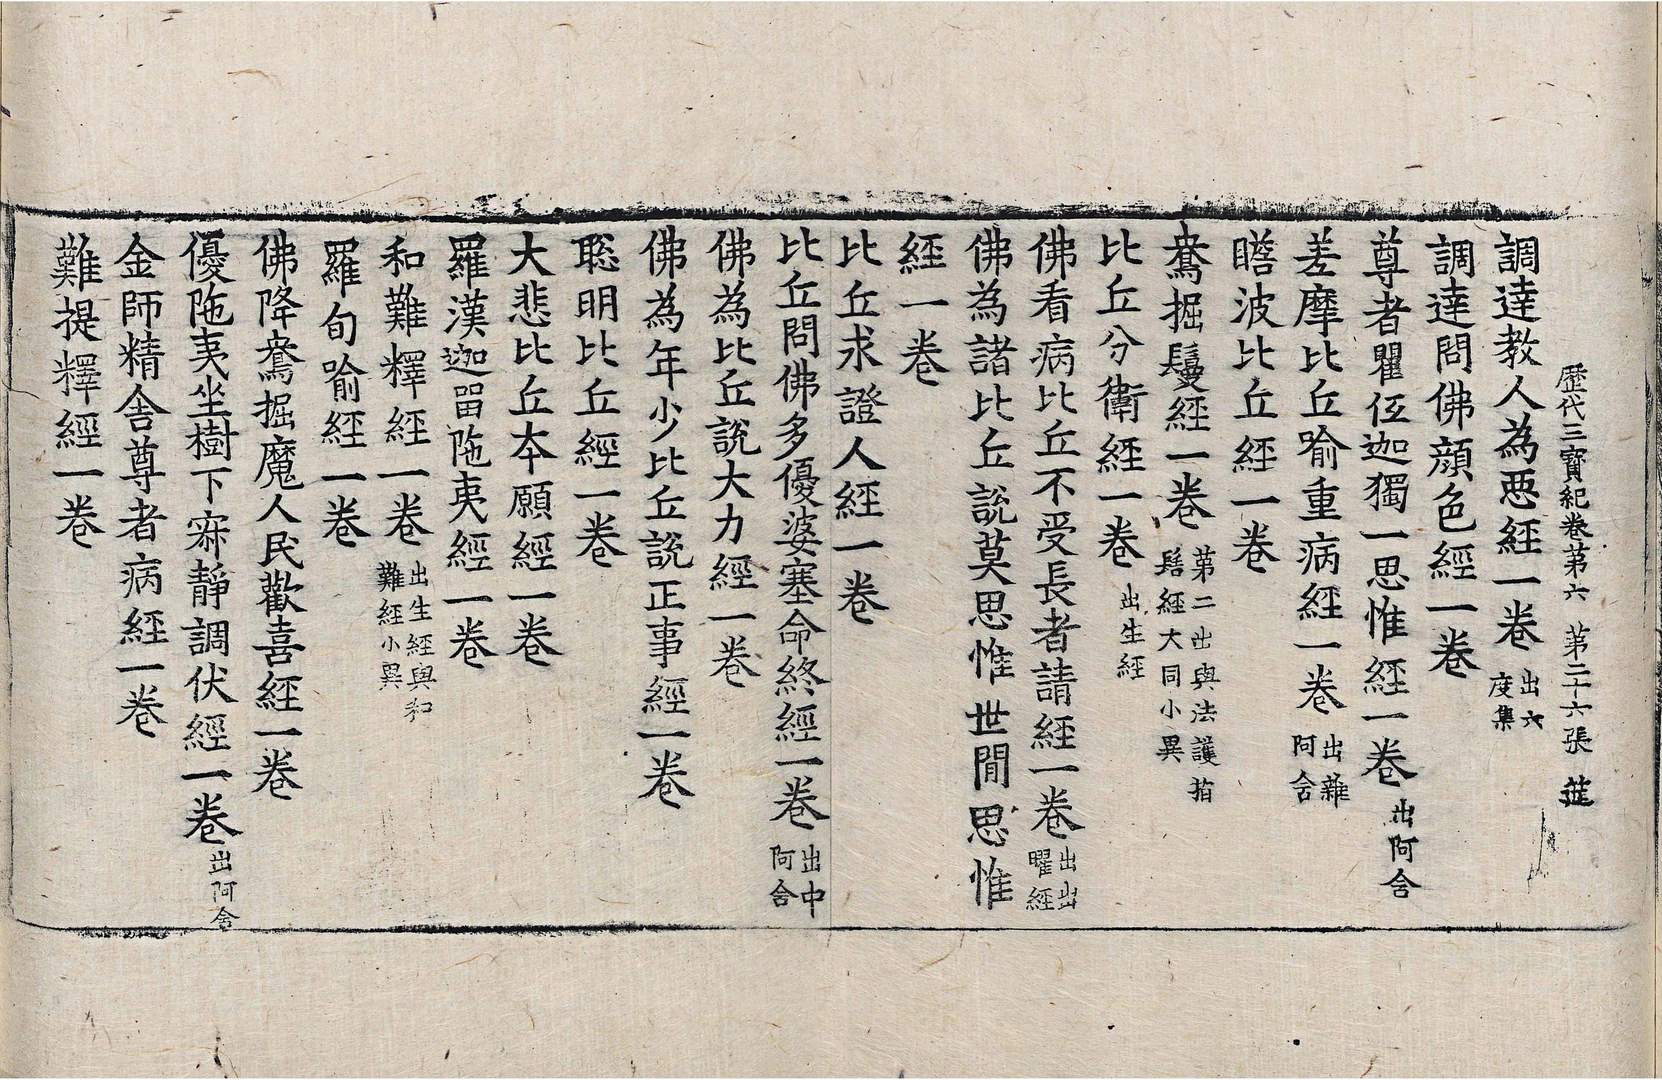 歷代三寶紀卷苐六 苐二十六張 𨔛
調達教人為惡經一卷 出六度集
調達問佛顔色經一卷
尊者瞿伍迦獨一思惟經一卷 出阿含
差摩比丘喻重病經一卷 出雜阿含
瞻波比丘經一卷
鴦掘鬘經一卷 苐二出與法護指髻經大同小異
比丘分衛經一卷 出生經
佛看病比丘不受長者請經一卷 出出曜經
佛為諸比丘說莫思惟世閒思惟
經一卷
比丘求證人經一卷
比丘問佛多優婆塞命終經一卷 出中阿含
佛為比丘說大力經一卷
佛為年少比丘說正事經一卷
聡明比丘經一卷
大悲比丘夲願經一卷
羅漢迦留陁夷經一卷
和難釋經一卷 出生經與和難經小異
羅旬喻經一卷
佛降鴦掘魔人民歡喜經一卷
優陁夷坐樹下寂靜調伏經一卷 出阿含
金師精舍尊者病經一卷
難提釋經一卷